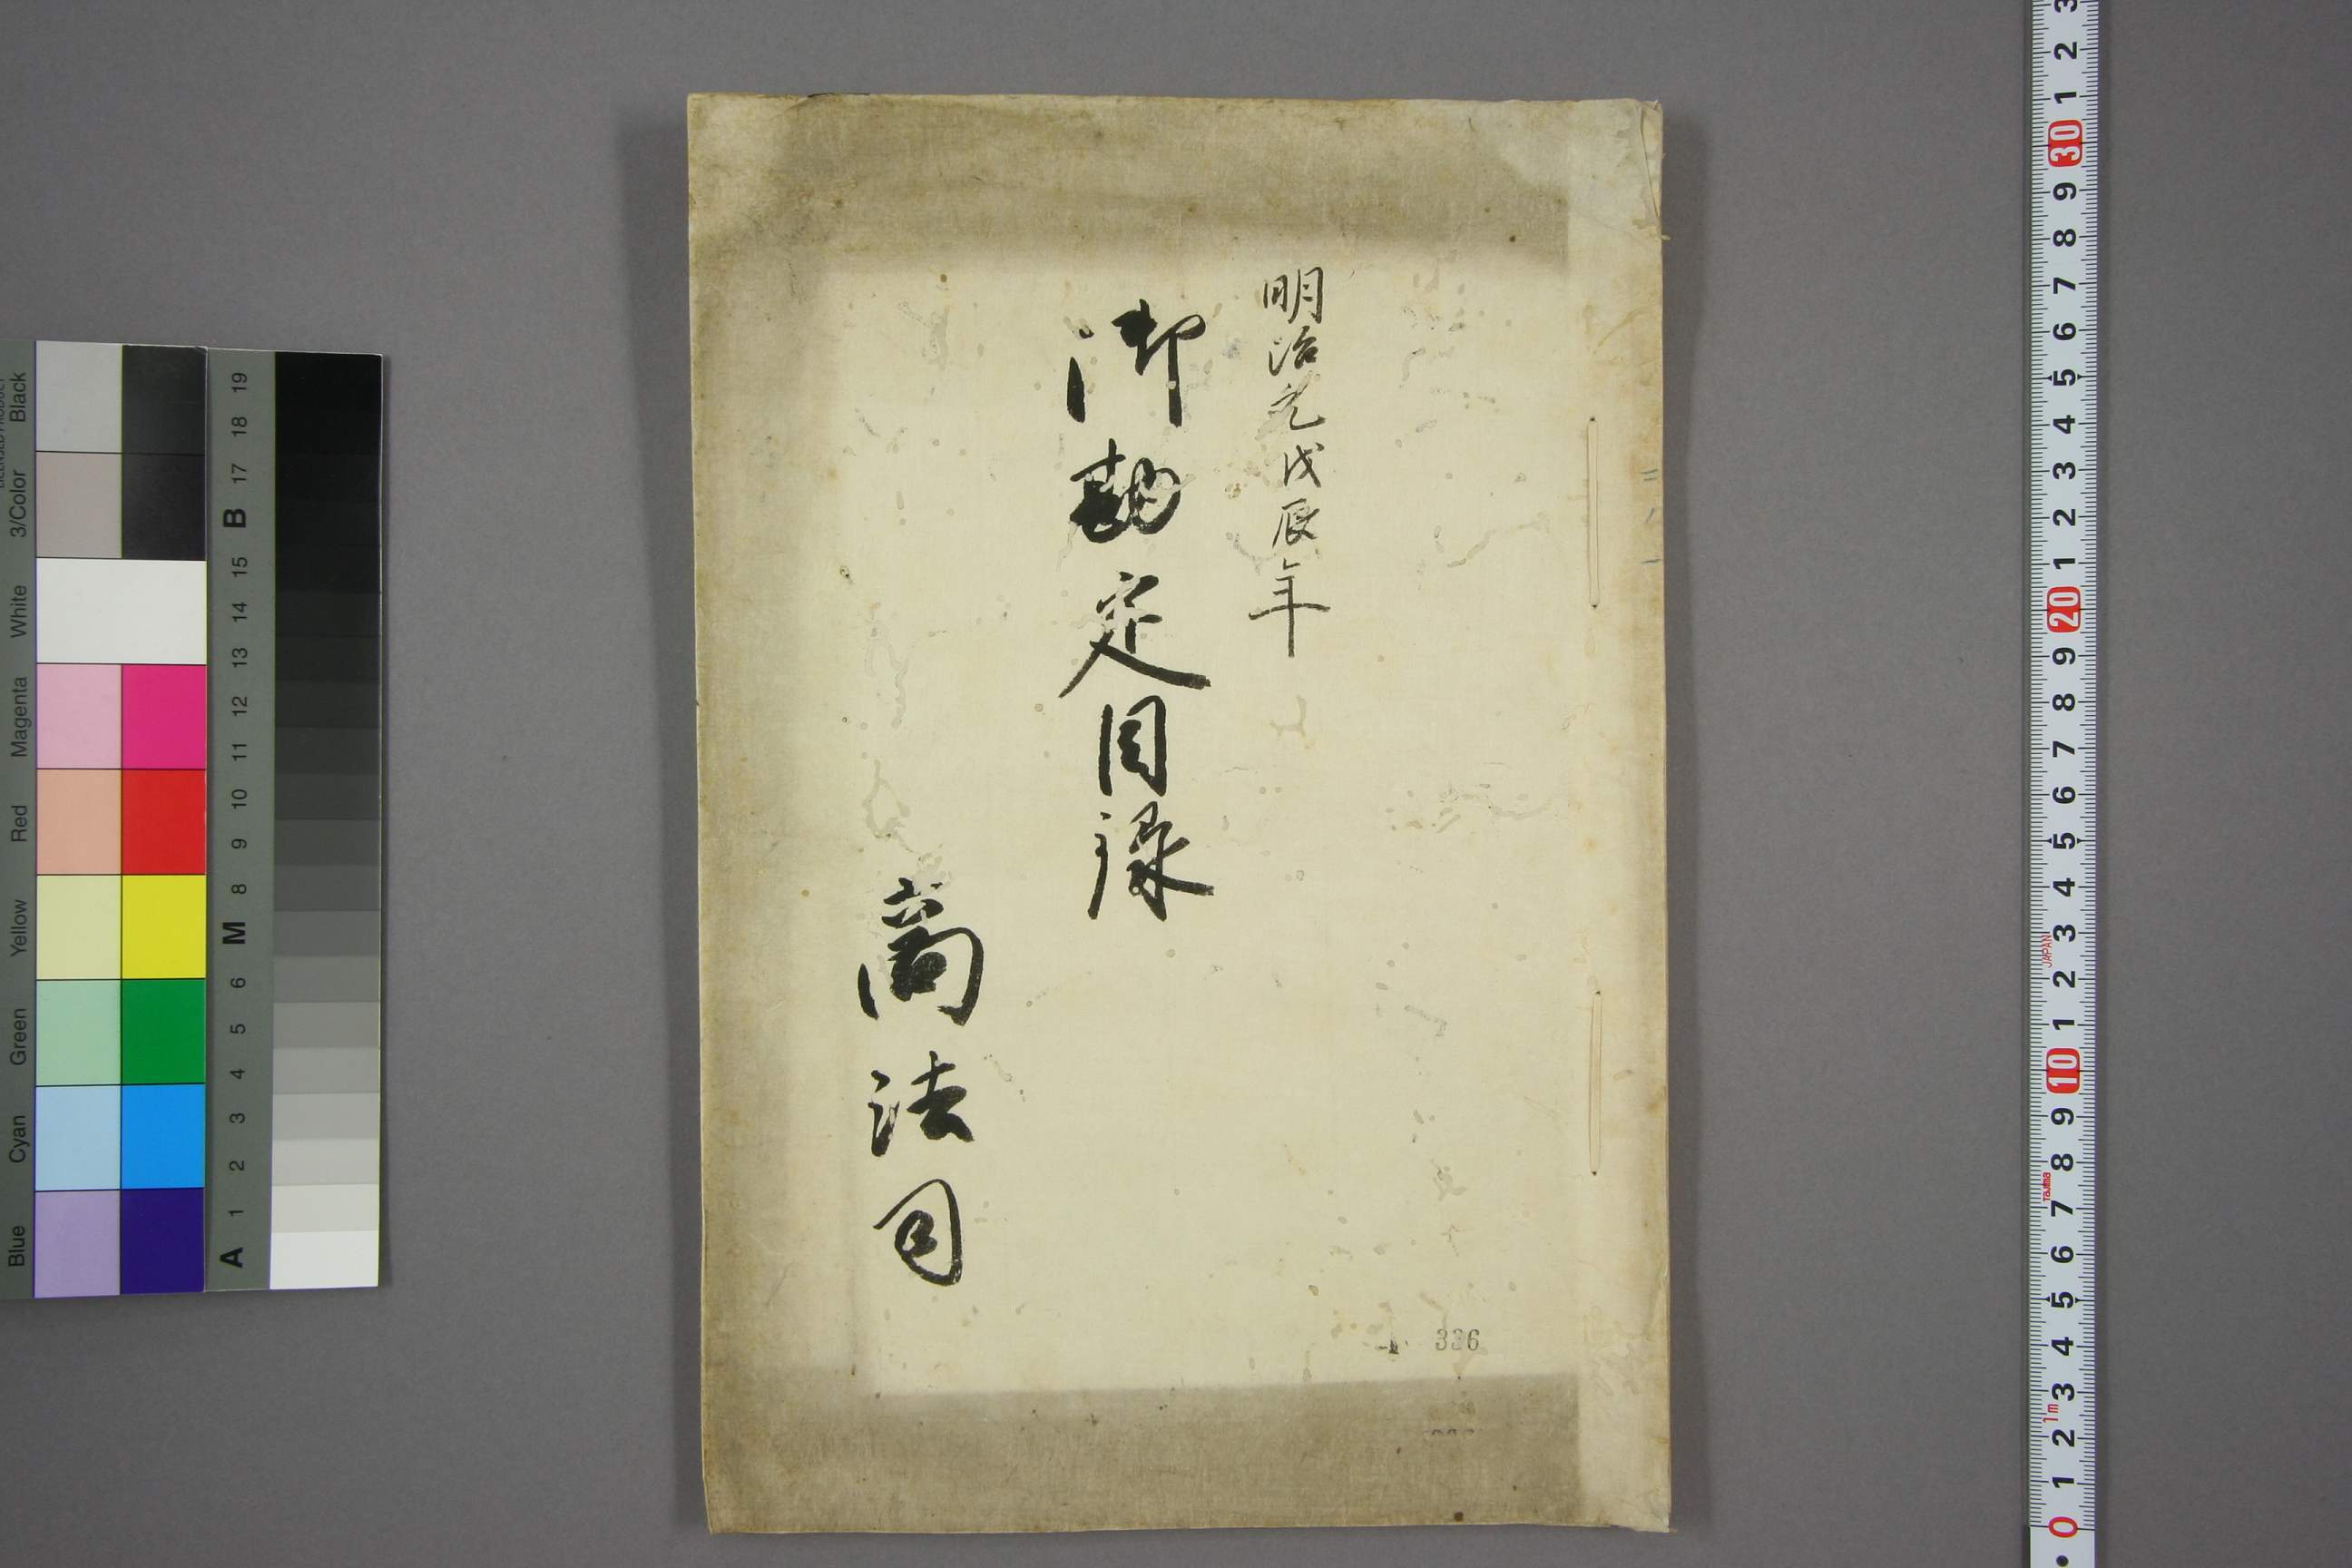 明治元戊辰年
御勘定目録
商法司
336
Blue Cyan Green Yellow Red Magenta White 3/Color Black
A 1 2 3 4 5 6 M 8 9 10 11 12 13 14 15 B 17 18 19
0 1 2 3 4 5 6 7 8 9 10 1 2 3 4 5 6 7 8 9 20 1 2 3 4 5 6 7 8 9 30 1 2 3
1m
Tajima
JAPAN